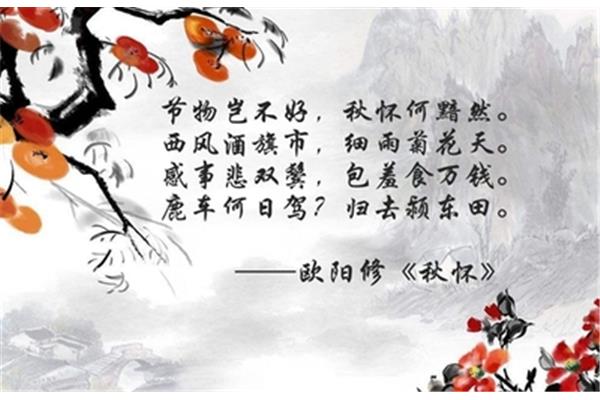 节物岂不好，秋怀何黯然。
西风酒旗市，细雨菊花天。
感事悲双鬓，包羞食万钱。
鹿车何日驾？归去颍东田。
——欧阳修《秋怀》